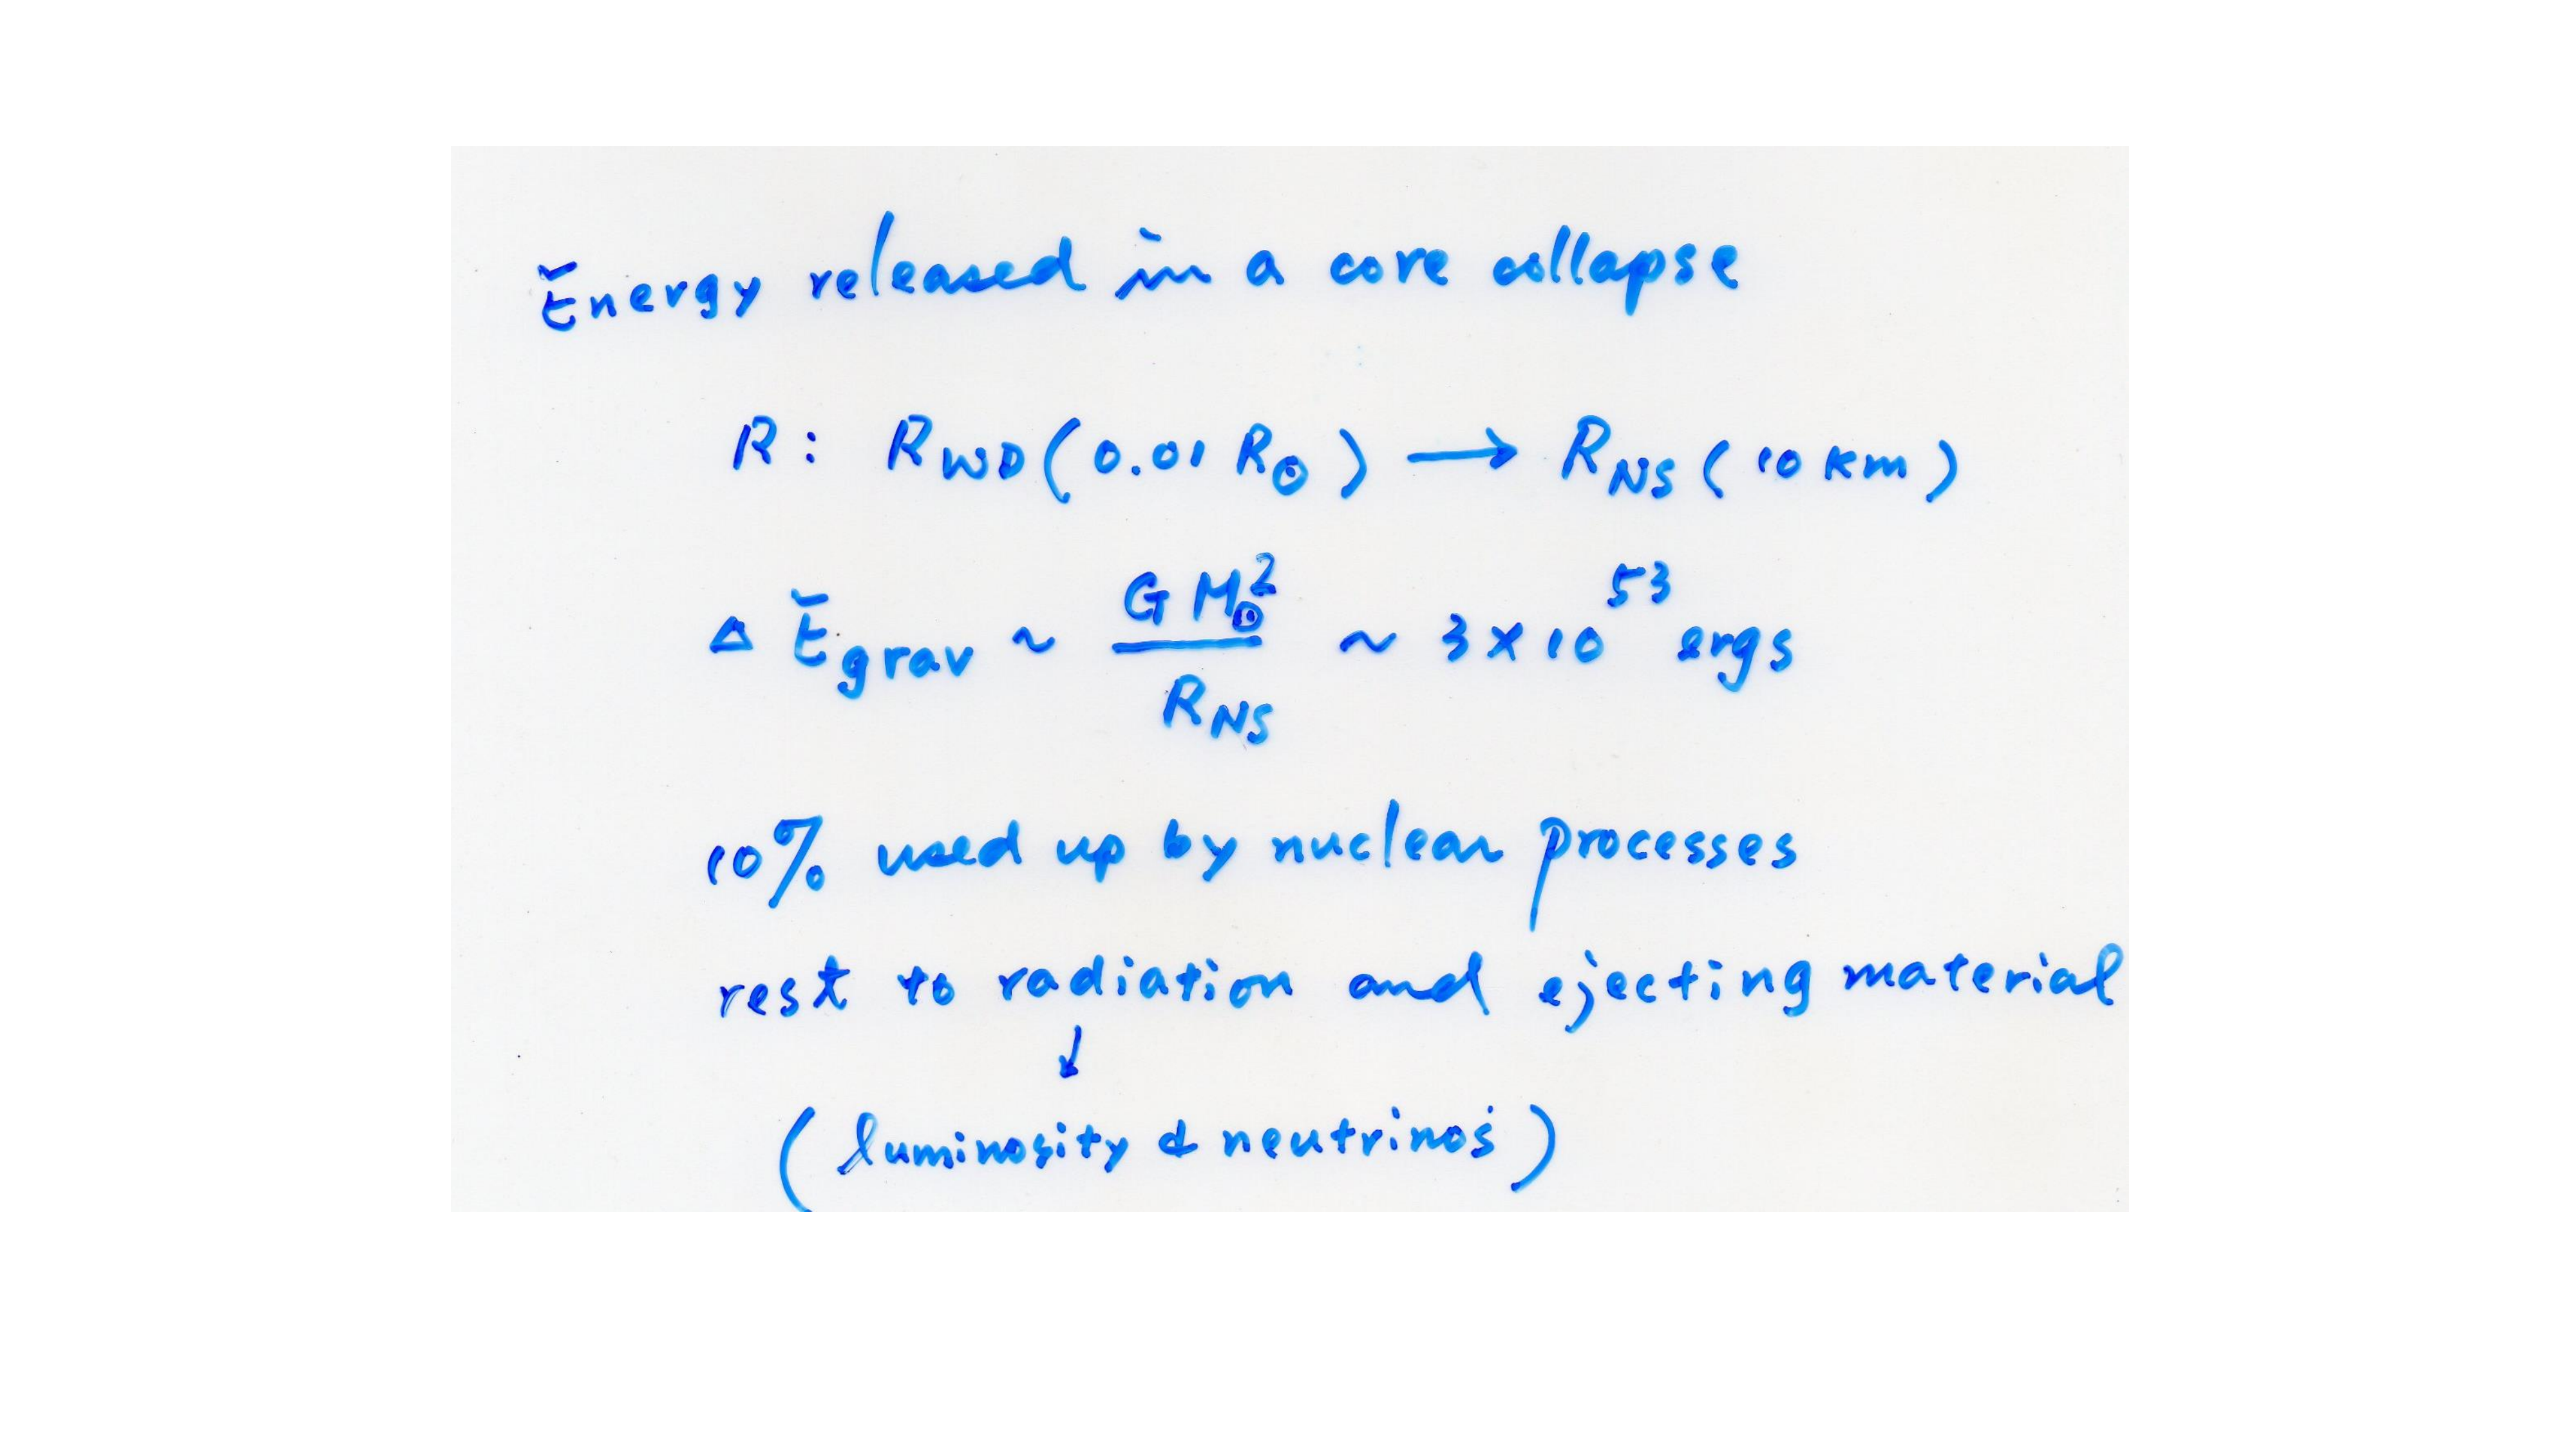 Energy released in a core collapse
R: R_WD (0.01 R_⊙) → R_NS (10 km)
Δ E_grav ~ G M_⊙^2 / R_NS ~ 3 x 10^53 ergs
10% used up by nuclear processes
rest to radiation and ejecting material
↓
(luminosity & neutrinos)